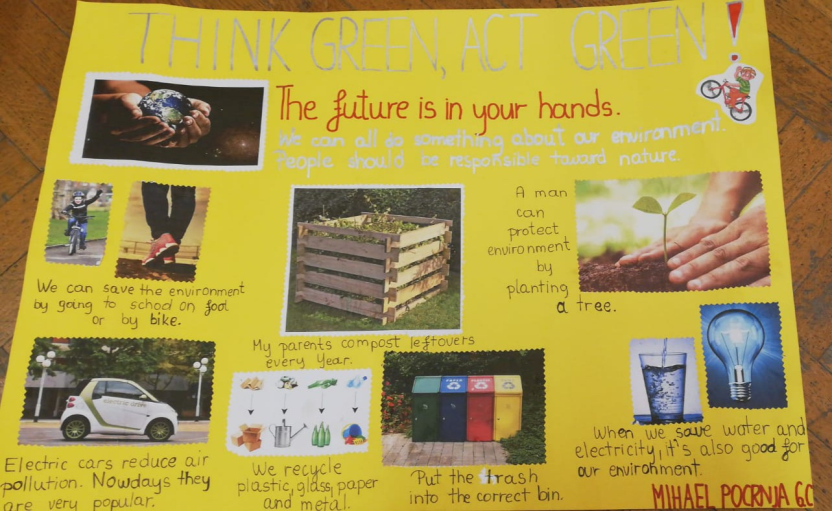 THINK GREEN, ACT GREEN!
The future is in your hands.
We can all do something about our environment.
People should be responsible toward nature.
A man
can
protect
environment
by
planting
a tree.
We can save the environment
by going to school on foot
or by bike.
My parents compost leftovers
every year.
Electric cars reduce air
pollution. Nowdays they
are very popular.
We recycle
plastic, glass, paper
and metal.
Put the trash
into the correct bin.
When we save water and
electricity, it's also good for
our environment.
MIHAEL POCRNJA 6.C